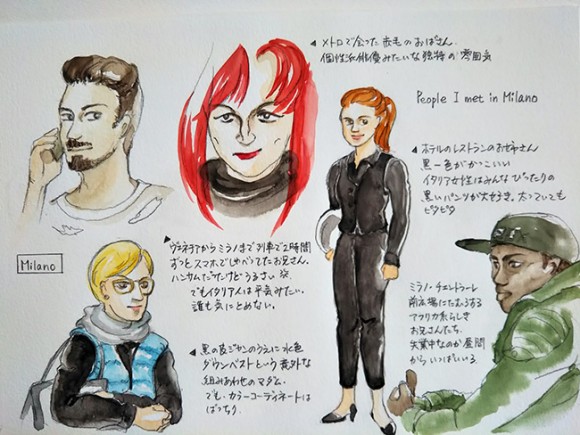 メトロで会った赤毛のおばさん.
個性派俳優みたいな独特の雰囲気
People I met in Milano
ホテルのレストランのお姉さん
黒一色がかっこいい
イタリア女性はみんなぴったりの
黒いパンツが大好き。太っていても
ピタピタ
ヴェネチアからミラノまで列車で2時間
ずっとスマホでしゃべってたお兄さん.
ハンサムだったけどうるさい
でもイタリア人は平気みたい.
誰も気にとめない.
Milano
黒の皮ジャンのうえに水色
ダウンベストという意外な
組みあわせのマダム.
でも・カラーコーディネートは
ばっちり.
ミラノ・チェントラーレ
前広場にたむろする
アフリカ系らしき
お兄さんたち.
失業中なのか昼間
からいっぱいいる